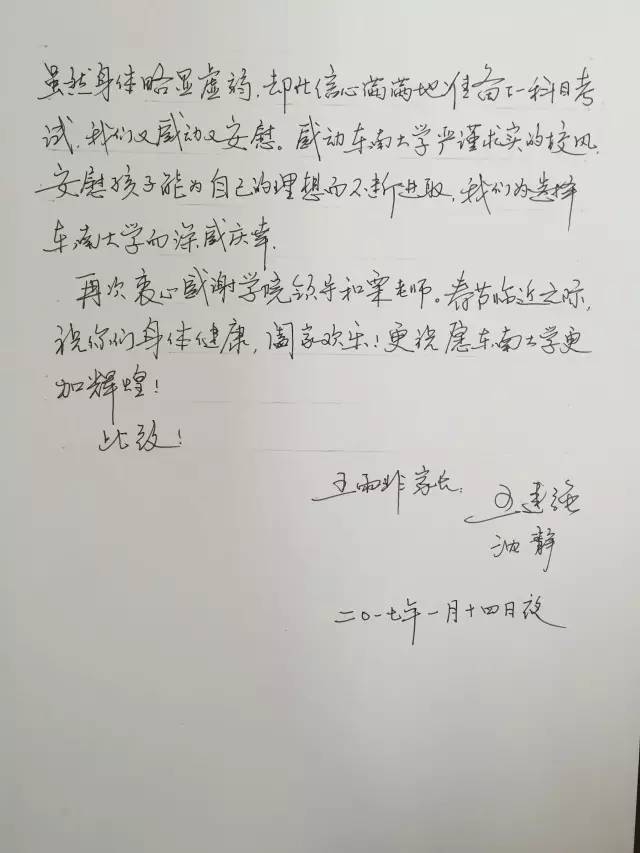 虽然身体略显虚弱，却仕信心满满地准备下一科目考
试，我们又感动又安慰。感动东南大学严谨求实的校风，
安慰孩子能为自己的理想而不断进取，我们为选择
东南大学而深感庆幸.
再次衷心感谢学院领导和栗老师。春节临近之际，
祝你们身体健康，阖家欢乐！更祝愿东南大学更
加辉煌！
此致！
王雨非家长：王建强
沈静
二〇一七年一月十四日夜